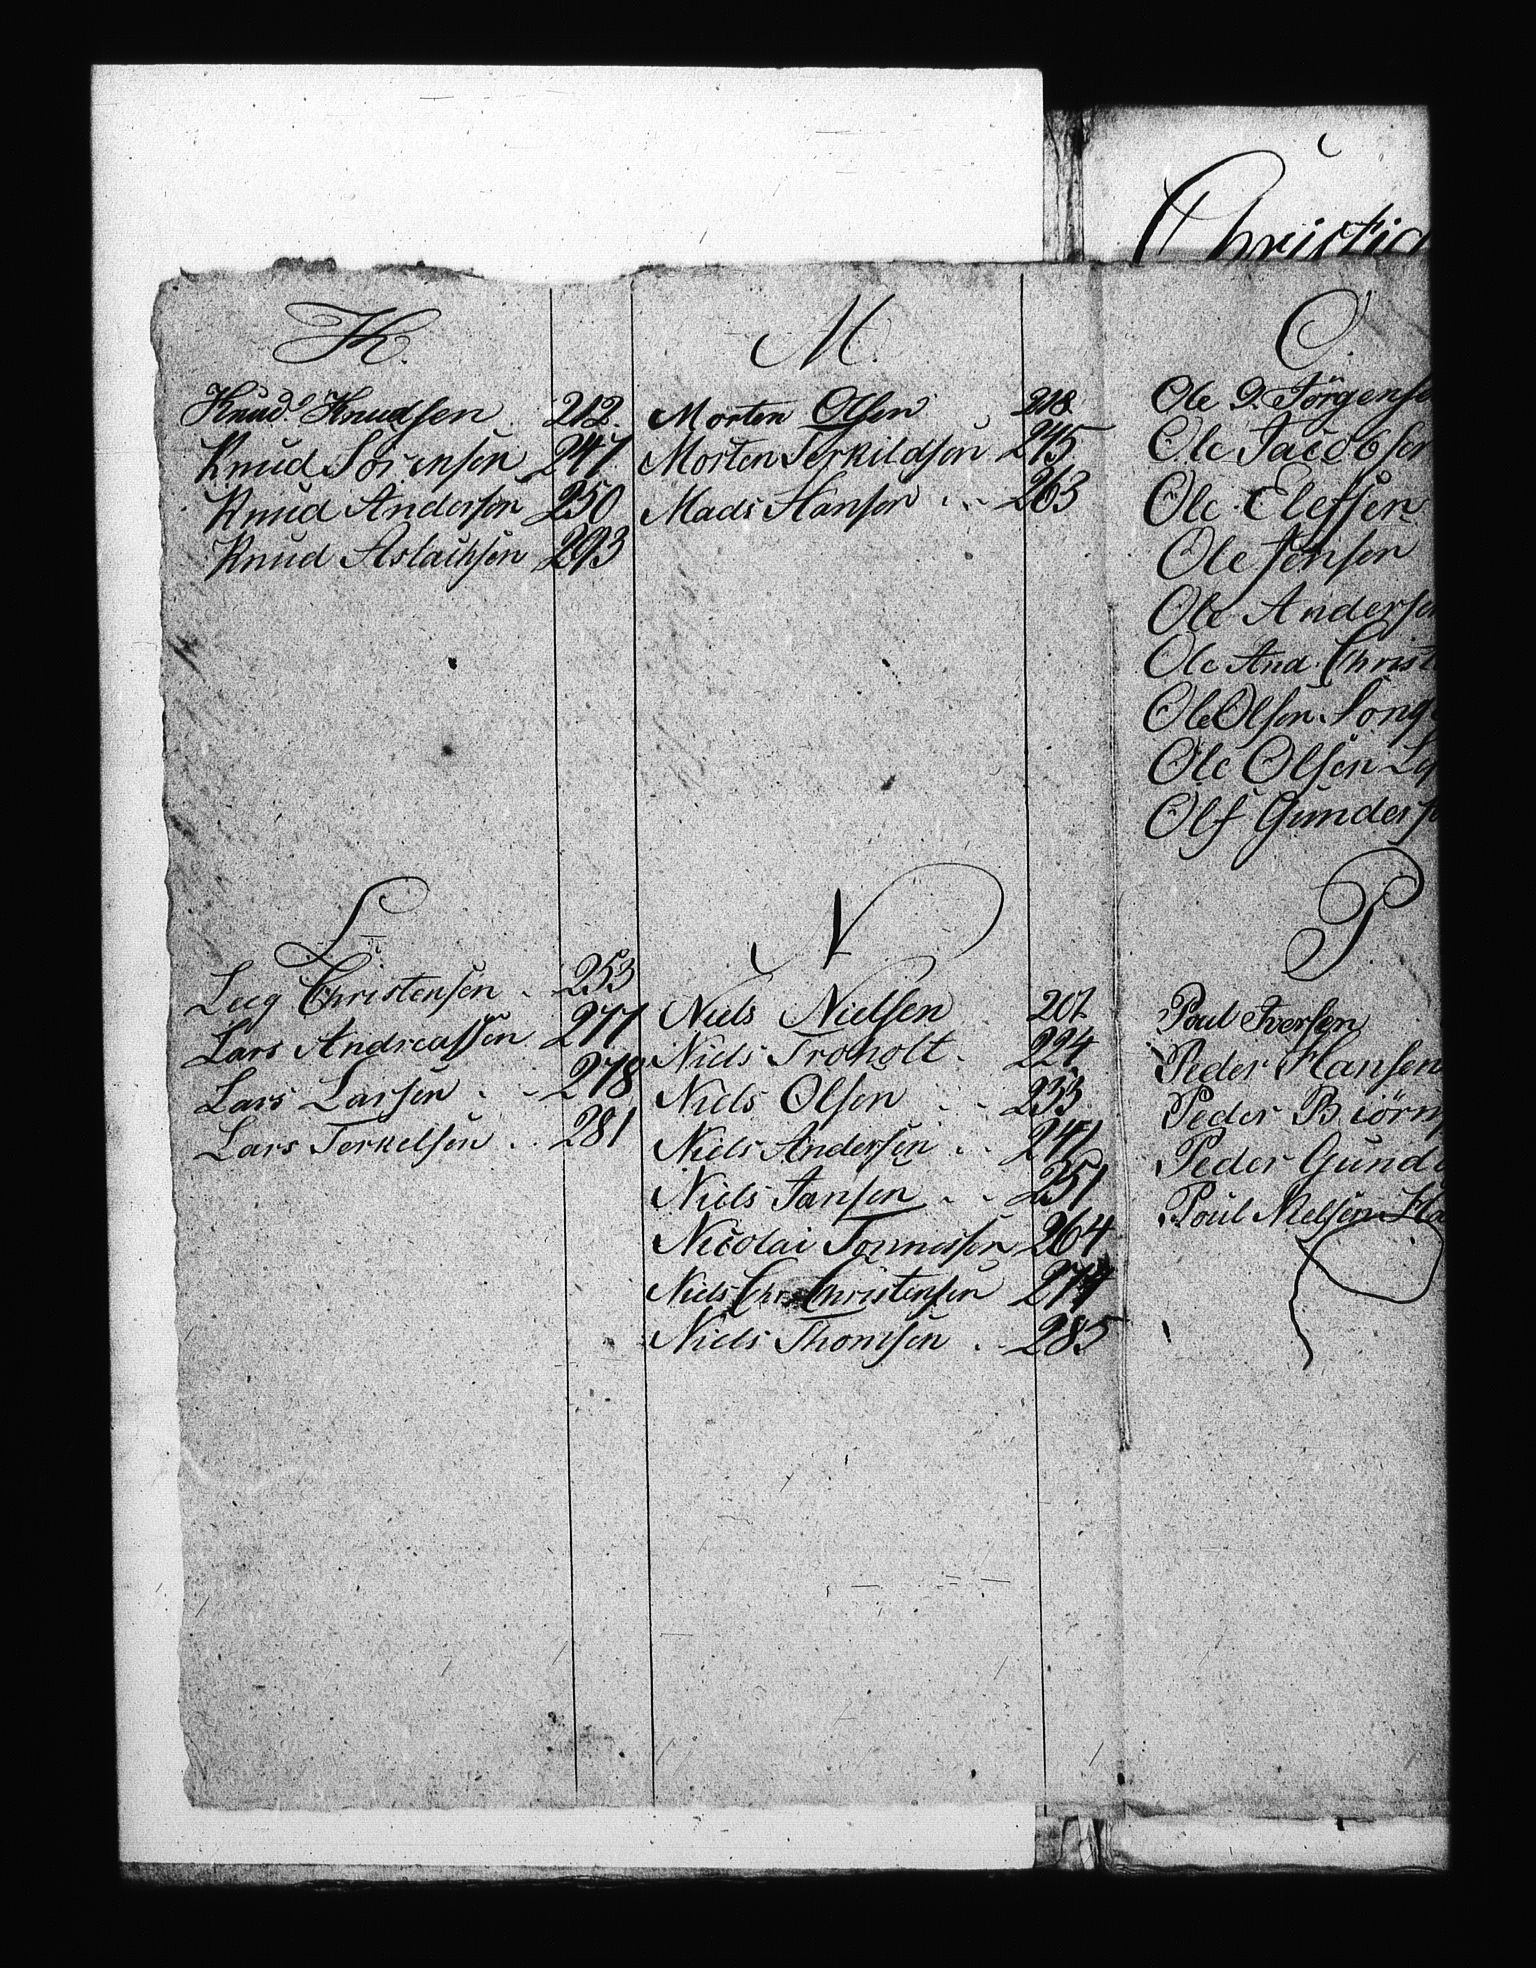 Christia
K.
Knud Knudsen 212.
Knud Sörensen 247
Knud Andersen 250
Knud Aslachsen 293
L
Christensen 253
Lars Andreassen 277
Lars Larsen 278
Lars Terkelsen 281
M.
Morten Olsen 218
Morten Terkildsen 245
Mads Hansen 263
N
Niels Nielsen 207
Niels Troholt 224
Niels Olsen 233
Niels Andersen 241
Niels Jansen 251
Nicolai Tönnessen 264
Niels Chr. Christensen 274
Niels Thomsen 285
O.
Ole J. Jörgense
Ole Jacobsen
Ole Elefsen
Ole Jensen
Ole Andersen
Ole And. Christ
Ole Olsen Song
Ole Olsen
Olf Gunders
P
Poul Iversen
Peder Hansen
Peder Biörn
Peder Gund
Poul Nielsen